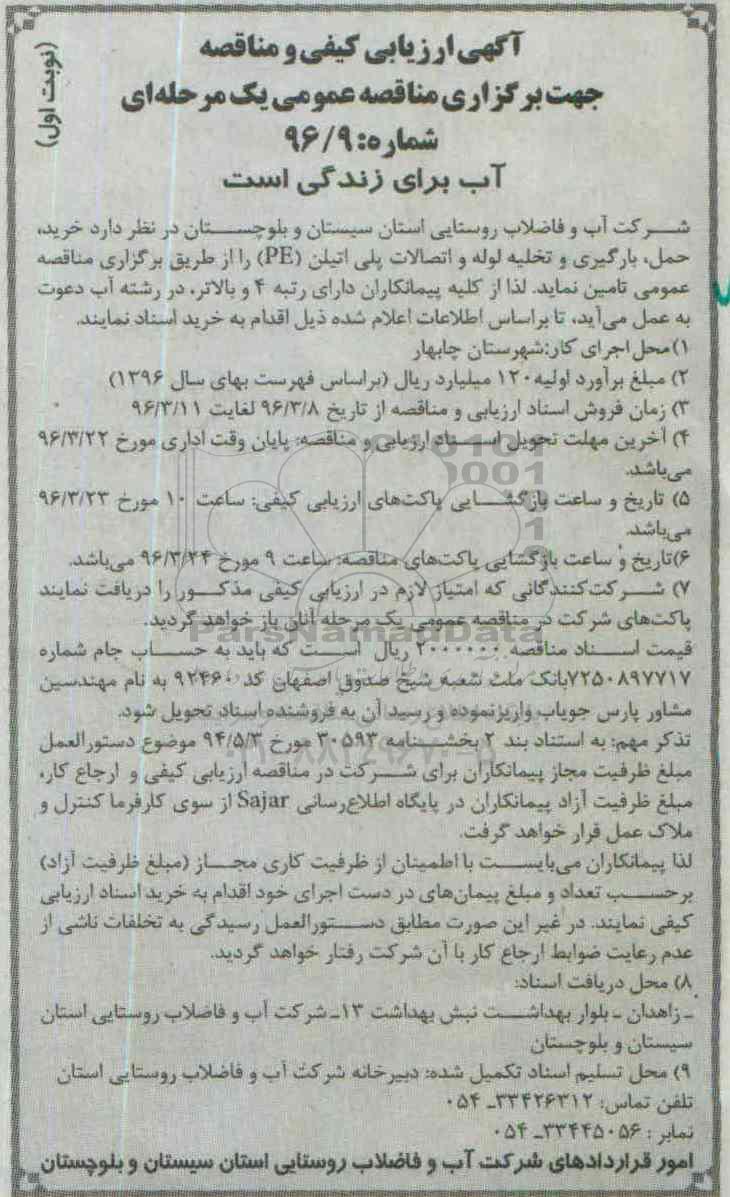 (نوبت اول)
آگهی ارزیابی کیفی و مناقصه
جهت برگزاری مناقصه عمومی یک مرحله‌ای
شماره: ۹۶/۹
آب برای زندگی است
شرکت آب و فاضلاب روستایی استان سیستان و بلوچستان در نظر دارد خرید،
حمل، بارگیری و تخلیه لوله و اتصالات پلی اتیلن (PE) را از طریق برگزاری مناقصه
عمومی تامین نماید. لذا از کلیه پیمانکاران دارای رتبه ۴ و بالاتر، در رشته آب دعوت
به عمل می‌آید، تا براساس اطلاعات اعلام شده ذیل اقدام به خرید اسناد نمایند.
۱) محل اجرای کار: شهرستان چابهار
۲) مبلغ برآورد اولیه ۱۲۰ میلیارد ریال (براساس فهرست بهای سال ۱۳۹۶)
۳) زمان فروش اسناد ارزیابی و مناقصه از تاریخ ۹۶/۳/۸ لغایت ۹۶/۳/۱۱
۴) آخرین مهلت تحویل اسناد ارزیابی و مناقصه: پایان وقت اداری مورخ ۹۶/۳/۲۲
می‌باشد.
۵) تاریخ و ساعت بازگشایی پاکت‌های ارزیابی کیفی: ساعت ۱۰ مورخ ۹۶/۳/۲۳
می‌باشد.
۶) تاریخ و ساعت بازگشایی پاکت‌های مناقصه: ساعت ۹ مورخ ۹۶/۳/۲۴ می‌باشد.
۷) شرکت‌کنندگانی که امتیاز لازم در ارزیابی کیفی مذکور را دریافت نمایند
پاکت‌های شرکت در مناقصه عمومی یک مرحله آنان باز خواهد گردید.
ParsNamadData
قیمت اسناد مناقصه ۲۰۰۰۰۰۰ ریال است که باید به حساب جام شماره
۷۲۵۰۸۹۷۷۱۷ بانک ملت شعبه شیخ صدوق اصفهان کد ۹۲۴۶۰ به نام مهندسین
مشاور پارس جویاب واریز نموده و رسید آن به فروشنده اسناد تحویل شود.
تذکر مهم: به استناد بند ۲ بخشنامه ۳۰۵۹۳ مورخ ۹۴/۵/۳ موضوع دستورالعمل
مبلغ ظرفیت مجاز پیمانکاران برای شرکت در مناقصه ارزیابی کیفی و ارجاع کار،
مبلغ ظرفیت آزاد پیمانکاران در پایگاه اطلاع‌رسانی Sajar از سوی کارفرما کنترل و
ملاک عمل قرار خواهد گرفت.
لذا پیمانکاران می‌بایست با اطمینان از ظرفیت کاری مجاز (مبلغ ظرفیت آزاد)
برحسب تعداد و مبلغ پیمان‌های در دست اجرای خود اقدام به خرید اسناد ارزیابی
کیفی نمایند. در غیر این صورت مطابق دستورالعمل رسیدگی به تخلفات ناشی از
عدم رعایت ضوابط ارجاع کار با آن شرکت رفتار خواهد گردید.
۸) محل دریافت اسناد:
ـ زاهدان ـ بلوار بهداشت نبش بهداشت ۱۳ ـ شرکت آب و فاضلاب روستایی استان
سیستان و بلوچستان
۹) محل تسلیم اسناد تکمیل شده: دبیرخانه شرکت آب و فاضلاب روستایی استان
تلفن تماس: ۳۳۴۲۶۳۱۲ ـ ۰۵۴
نمابر: ۳۳۴۴۵۰۵۶ ـ ۰۵۴
امور قراردادهای شرکت آب و فاضلاب روستایی استان سیستان و بلوچستان